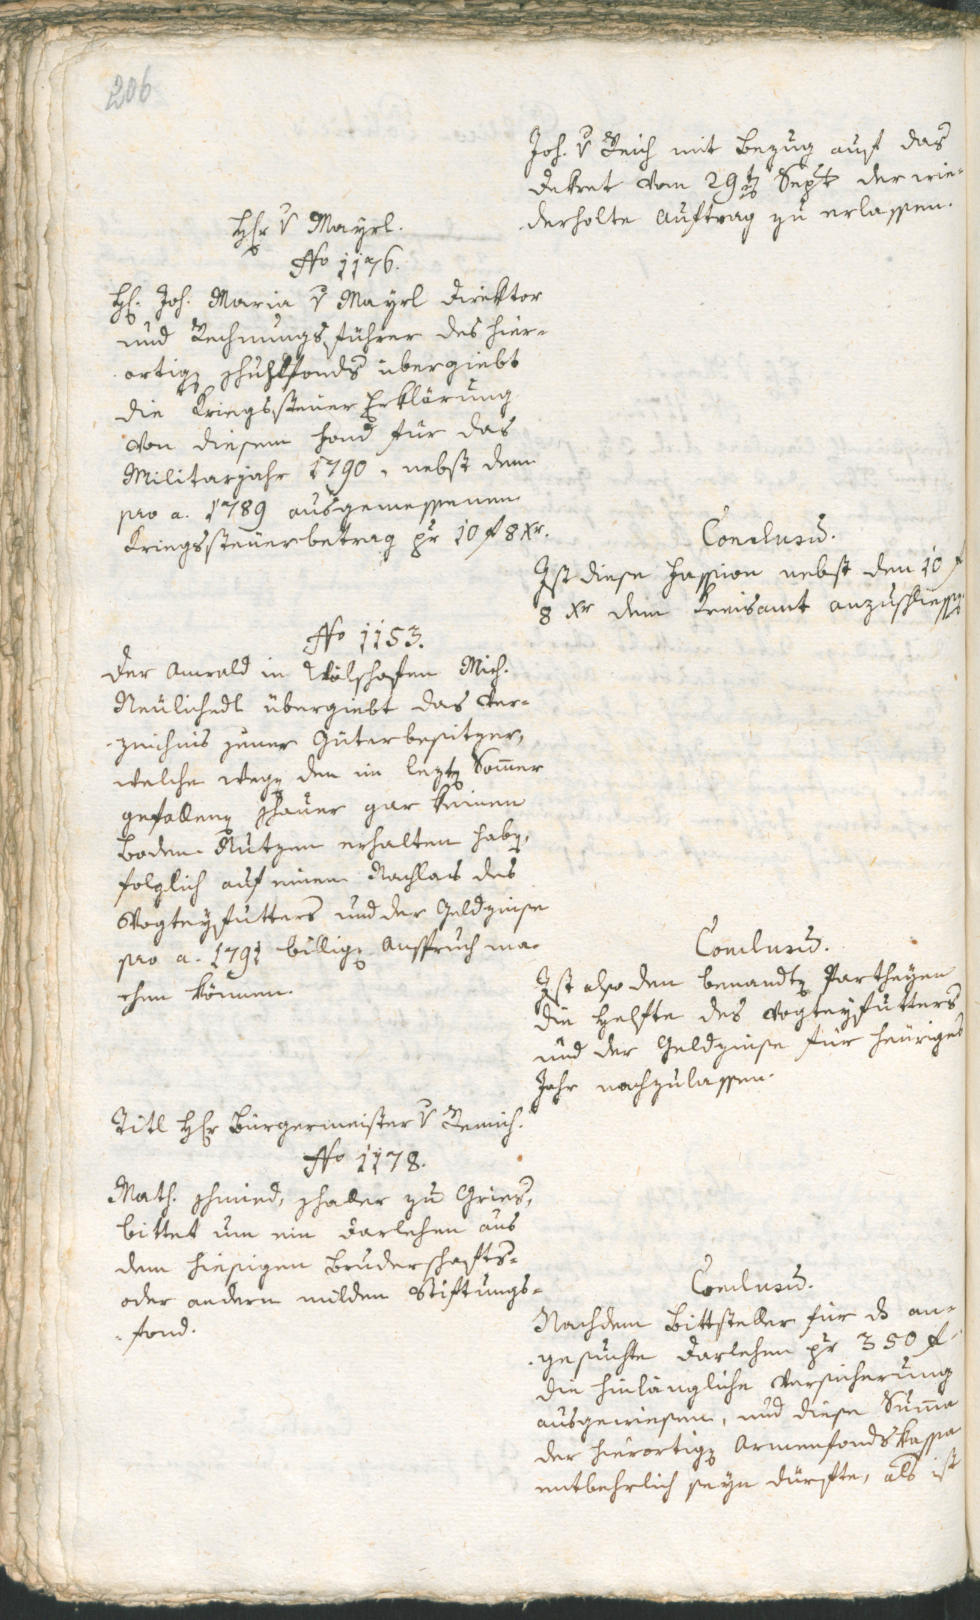 206
Joh. v Reich mit Bezug auf das
Dekret vom 29ten Sept der wie-
derholte Auftrag zu erlassen.
Hr v Mayrl.
No 1176.
H. Joh. Maria v Mayrl Direktor
und Rechnungsführer des hier-
ortigen Schulfonds übergiebt
die Kriegssteuer Erklärung
von diesem Fond für das
Militarjahr 1790, nebst dem
pro a. 1789 ausgemessenen
Kriegssteuerbetrag pr 10 f 8 Xr.
Conclusum.
Ist diese Fassion nebst den 10 f
8 Xr dem Kreisamt anzuschliessen.
No 1153.
Der Anwald in Mich.
übergiebt das Ver-
zeichnis jener Güterbesitzer,
welche wegen den im lezten Sommer
gefallenen Schauer gar keinen
Boden-Nutzen erhalten haben,
folglich auf einen Nachlas des
Vogteyfutters und der Geldzinse
pro a. 1791 billigen Anspruch ma-
chen können.
Conclusum.
Ist also den benandten Partheyen
die Helfte des Vogteyfutters
und der Geldzinse für heuriges
Jahr nachzulassen.
Titl Hr Bürgermeister v
No 1178.
Math. Schmied, Schaller zu Gries,
bittet um ein Darlehen aus
dem hiesigen Bruderschafts-
oder andern milden Stiftungs-
fond.
Conclusum.
Nachdem Bittsteller für ds an-
gesuchte Darlehen pr 350 f
die hinlängliche Versicherung
ausgewiesen, und diese Summe
der hierortigen Armenfondskassa
entbehrlich seyn dürfte, als ist